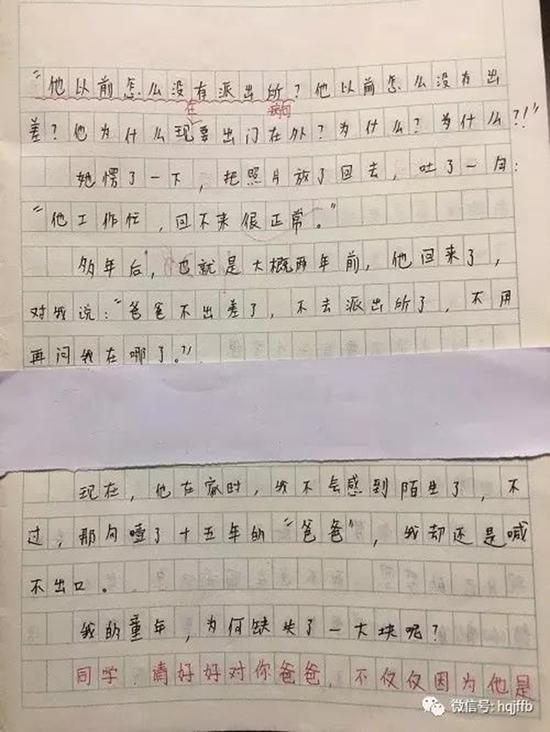 “他以前怎么没有派出所？他以前怎么没有出
在
病句
差？他为什么现要出门在外？为什么？为什么？！”
她愣了一下，把照片放了回去，吐了一句：
“他工作忙，回不来很正常。”
多年后，也就是大概两年前，他回来了，
对我说：“爸爸不出差了，不去派出所了，不用
再问我在哪了。”
现在，他在家时，我不会感到陌生了，不
过，那句哑了十五年的“爸爸”，我却还是喊
不出口。
我的童年，为何缺失了一大块呢？
同学：请好好对你爸爸，不仅仅因为他是
微信号: hqjffb